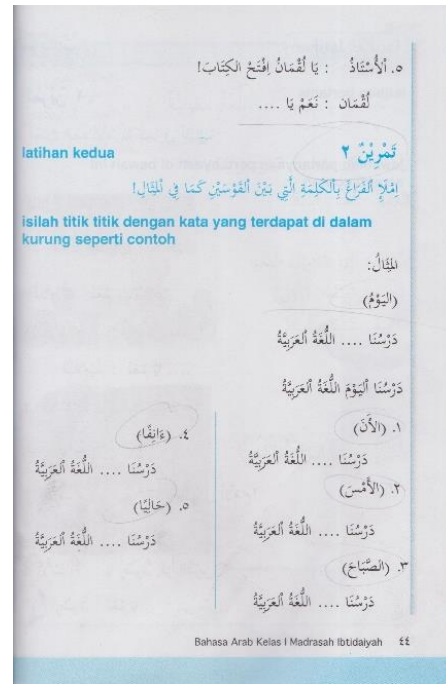 ٥. اَلْأُسْتَاذُ : يَا لُقْمَانُ اِفْتَحُ الكِتَابَ!
لُقْمَان : نَعَمْ يَا ....
تَمْرِيْنٌ ٢
latihan kedua
اِمْلَإِ اَلْفَرَاغَ بِاَلْكَلِمَةِ الَّتِي بَيْنَ اَلْقَوْسَيْنِ كَمَا فِي لْمِثَالِ!
isilah titik titik dengan kata yang terdapat di dalam
kurung seperti contoh
المِثَالُ:
(اليَوْمُ)
دَرْسُنَا .... اللُّغَةُ اَلعَرَبِيَّةُ
دَرْسُنَا اَليَوْمَ اللُّغَةُ اَلعَرَبِيَّةُ
١. (الأَنَ)
دَرْسُنَا .... اللُّغَةُ اَلعَرَبِيَّةُ
٢. (الأَمْسَ)
دَرْسُنَا .... اللُّغَةُ اَلعَرَبِيَّةُ
٣. (الصَّبَاحَ)
دَرْسُنَا .... اللُّغَةُ اَلعَرَبِيَّةُ
٤. (ءَانِفًا)
دَرْسُنَا .... اللُّغَةُ اَلعَرَبِيَّةُ
٥. (حَالِيًا)
دَرْسُنَا .... اللُّغَةُ اَلعَرَبِيَّةُ
Bahasa Arab Kelas I Madrasah Ibtidaiyah ٤٤